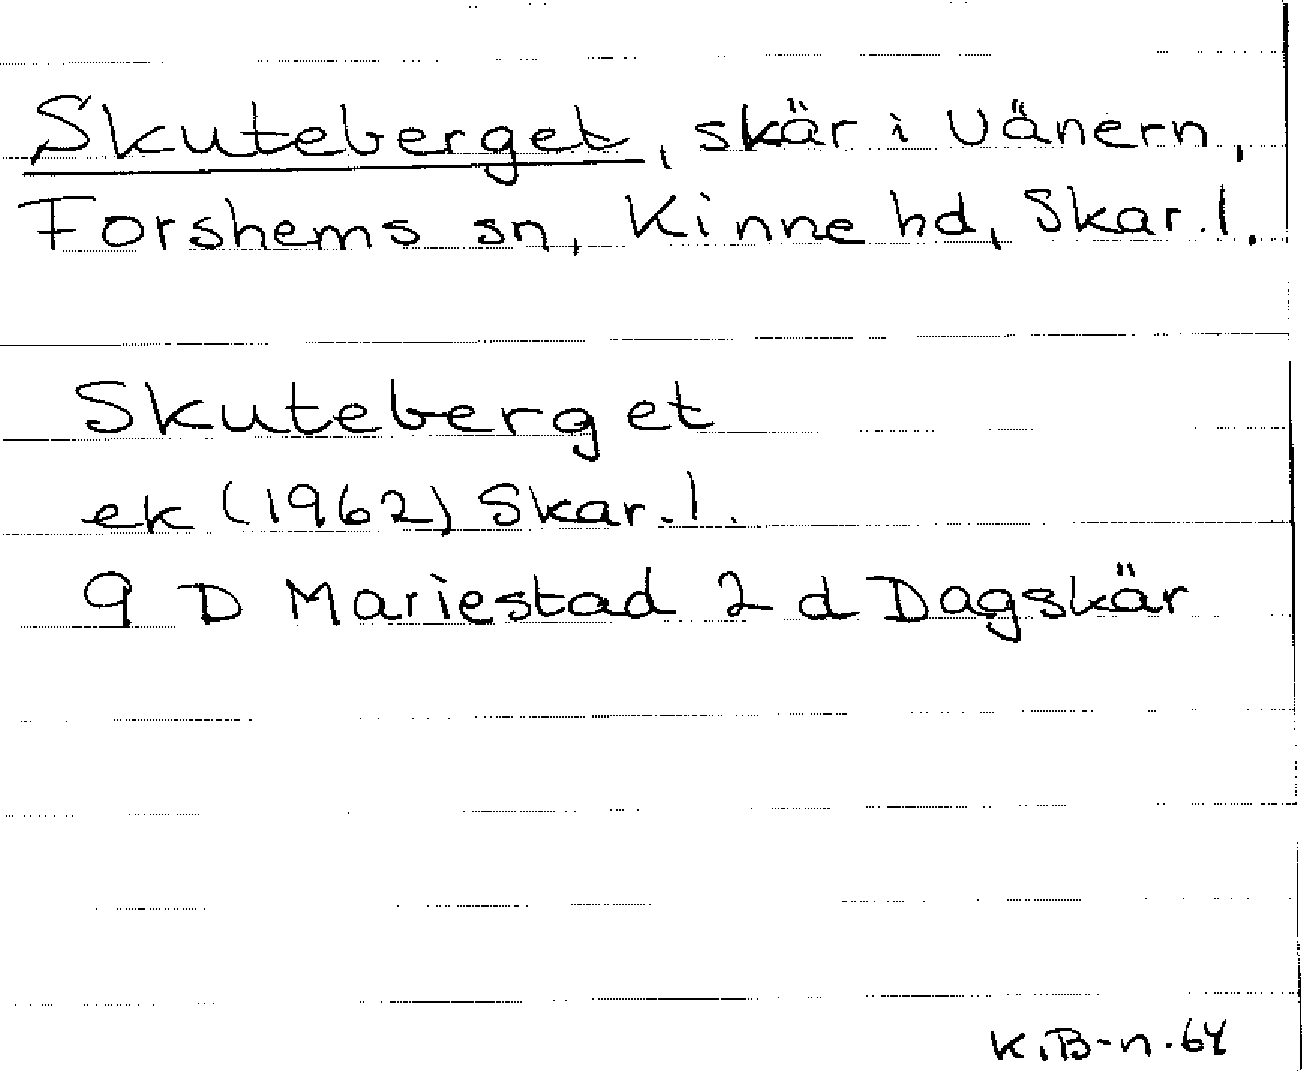 Skuteberget, skär i Vänern,
Forshems sn, Kinne hd, Skar.l.
Skuteberget
ek (1962) Skar.l.
9 D Mariestad 2 d Dagskär
K.B-n.64